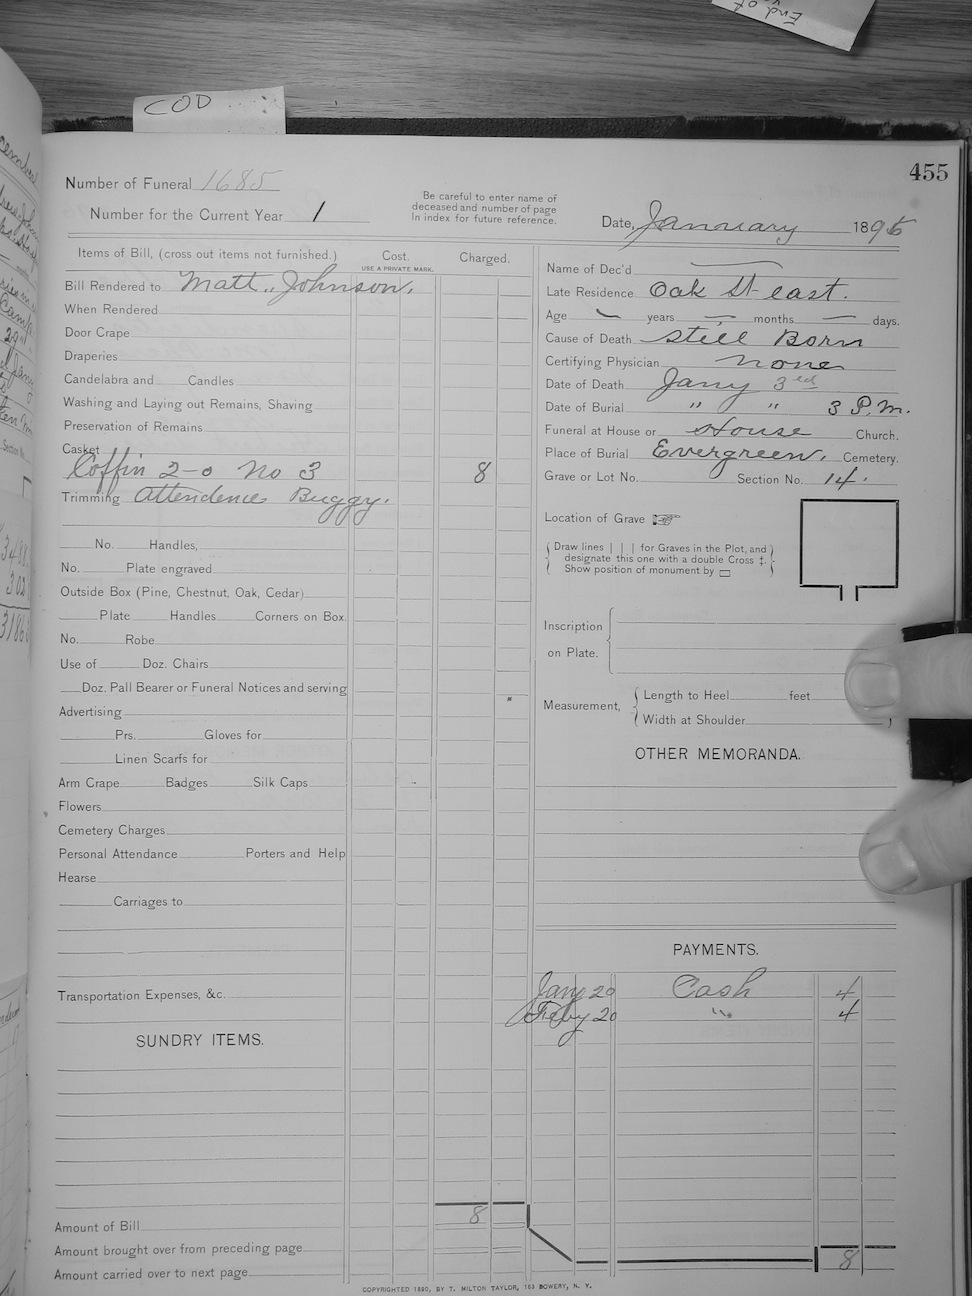 End of
COD
455
Number of Funeral 1685
Number for the Current Year 1
Be careful to enter name of
deceased and number of page
In index for future reference.
Date, January 1895
Items of Bill, (cross out items not furnished.) Cost. Charged.
USE A PRIVATE MARK.
Bill Rendered to Matt.. Johnson.
When Rendered
Door Crape
Draperies
Candelabra and Candles
Washing and Laying out Remains, Shaving
Preservation of Remains
Casket
Coffin 2-0 No 3 8
Trimming Attendence Buggy.
No. Handles,
No. Plate engraved
Outside Box (Pine, Chestnut, Oak, Cedar)
Plate Handles Corners on Box
No. Robe
Use of Doz. Chairs
Doz. Pall Bearer or Funeral Notices and serving
Advertising
Prs. Gloves for
Linen Scarfs for
Arm Crape Badges Silk Caps
Flowers
Cemetery Charges
Personal Attendance Porters and Help
Hearse
Carriages to
Transportation Expenses, &c.
SUNDRY ITEMS.
Amount of Bill 8
Amount brought over from preceding page
Amount carried over to next page
Name of Dec'd
Late Residence Oak St east.
Age years months days.
Cause of Death Still Born
Certifying Physician None
Date of Death Jany 3rd
Date of Burial " " 3 P.M.
Funeral at House or House Church.
Place of Burial Evergreen. Cemetery.
Grave or Lot No. Section No. 14.
Location of Grave
Draw lines | | | for Graves in the Plot, and
designate this one with a double Cross ‡.
Show position of monument by
Inscription
on Plate.
Measurement, Length to Heel feet
Width at Shoulder
OTHER MEMORANDA.
PAYMENTS.
Jany 20 Cash 4
Feby 20 " 4
8
COPYRIGHTED 1890, BY T. MILTON TAYLOR, 163 BOWERY, N. Y.